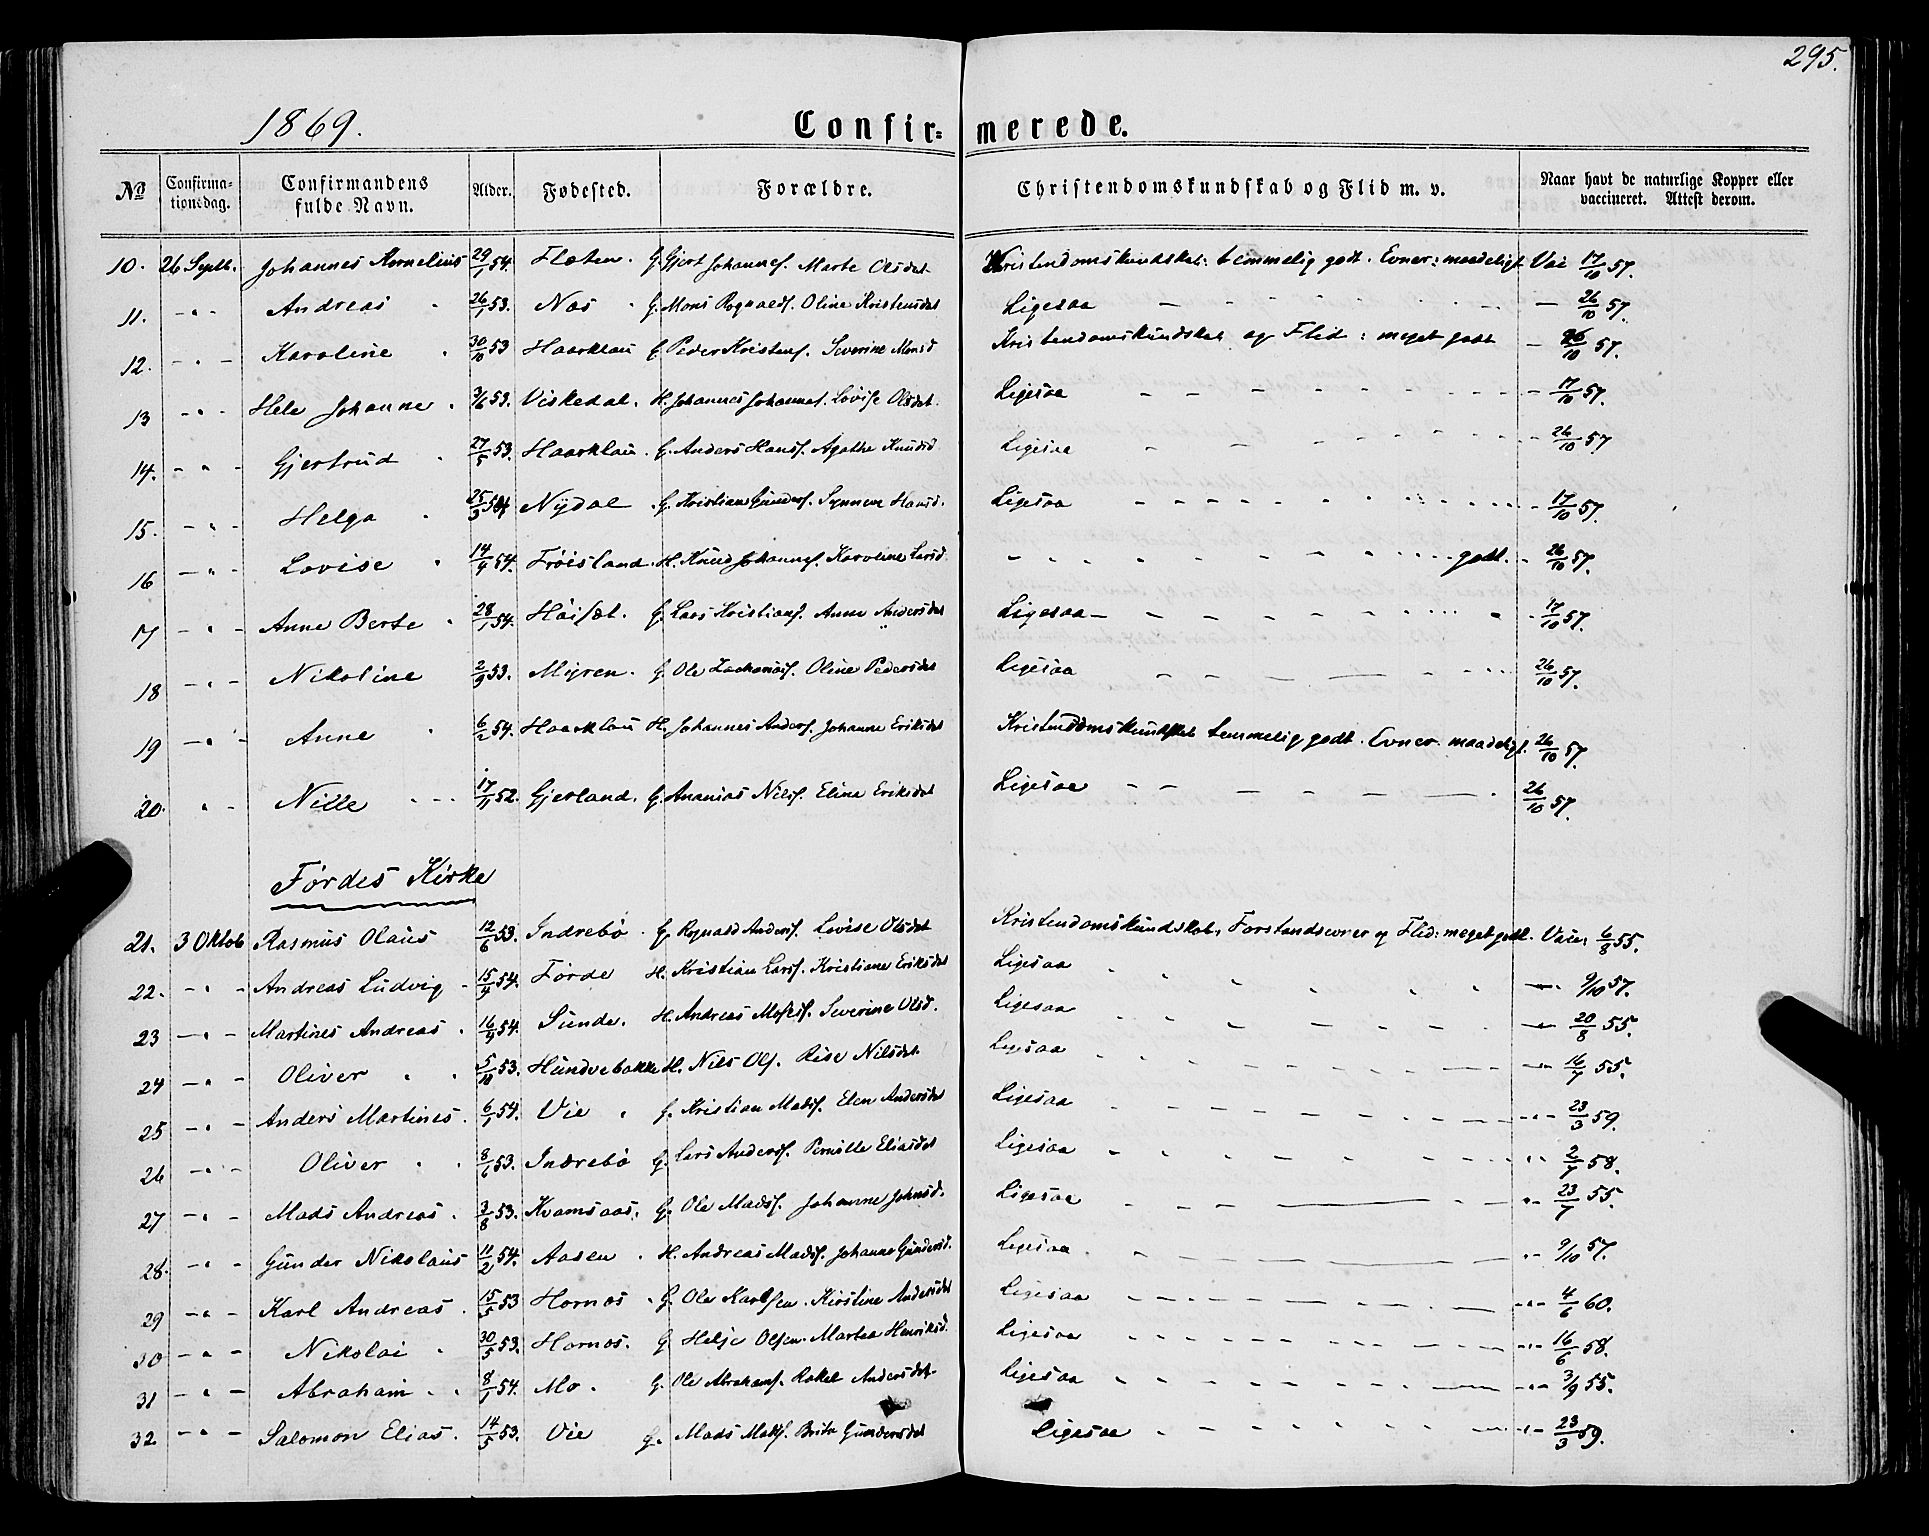 295.
1869. Confir=merede.
No Confirma-tionsdag. Confirmandens fulde Navn. Alder. Fødested. Forældre. Christendomskundskab og Flid m. v. Naar havt de naturlige Kopper eller vaccineret. Attest derom.
10. 26 Septb. Johannes Kornelius 29/1 54. Flaten. G. Gjert Johannesf. Marte Olsdat Kristendomskundskab: temmelig godt. Evner: maadeligt Vac 17/10 57.
11. - " - Andreas 26/1 53. Nas G. Mons Rognaldf. Oline Kristensdat Ligesaa 26/10 57.
12. - " - Karoline 30/10 53 Haarklau G Peder Kristenf. Severine Monsd Kristendomskundskab og Flid: meget godt 26/10 57.
13 - " - Hele Johanne 3/6 53. Viskedal. H. Johannes Johannesf. Lovise Olsdat. Ligesaa 17/10 57.
14. - " - Gjertrud 27/5 53. Haarklau. G. Anders Hansf. Agathe Knudsd Ligesaa 26/10 57
15. - " - Helga 25/3 54 Nydal G. Kristian Gunderf. Synneve Hansd. Ligesaa 17/10 57.
16 - " - Lovise 14/4 54. Frøisland. H. Knud Johannesf. Karoline Larsd. godt. 26/10 57.
17 - " - Anne Berte 28/1 54. Høisæt. G. Lars Kristianf. Anne Andersdat Ligesaa 17/10 57.
18 - " - Nikoline 2/9 53. Myren. G. Ole Zachariasf. Oline Pedersdat Ligesaa 26/10 57.
19 - " - Anne 6/2 54. Haarklau H. Johannes Andersf. Johanne Eriksdat Kristendomskundskab temmelig godt. Evner maadeligt. 26/10 57.
20. " - Nille 17/11 52. Gjerland. G. Ananias Nilsf. Eline Eriksdat Ligesaa 26/10 57.
Førdes Kirke
21. 3 Oktob Rasmus Olaus 12/6 53. Indrebø G. Rognald Andersf. Lovise Olsdat Kristendomskundskab, Forstandsevner og Flid: meget godt. Vacc 6/8 55.
22. - " - Andreas Ludvig 15/4 54. Førde H. Kristian Larsf. Kristiane Eriksdat Ligesaa 9/10 57.
23 - " - Martines Andreas 16/9 54. Sunde. H. Andreas Mosesf. Severine Olsd. Ligesaa 20/8 55.
24 - " - Oliver 5/10 53. Hundvebakke H. Nils Olf. Rise Nilsdat Ligesaa 16/7 55.
25 - " - Anders Martines. 6/1 54. Vie G. Kristian Madsf. Elen Andersdat Ligesaa 23/3 59.
26 - " - Oliver 8/6 53. Indrebø G. Lars Andersf. Pernille Eliasdat Ligesaa 2/7 58.
27 - " - Mads Andreas. 3/8 53. Kvamsaas. G. Ole Madsf. Johanne Johnsd. Ligesaa 23/7 55.
28. - " - Gunder Nikolaus 11/2 54. Aasen H. Andreas Madsf. Johanne Gundersd. Ligesaa 9/10 57.
29 - " - Karl Andreas. 15/5 53 Hornas G. Ole Karlsen. Kirstine Andersdat Ligesaa 4/6 60.
30 - " - Nikolai 30/5 53. Hornas. G. Helje Olsen. Martea Henriksd. Ligesaa 16/6 58.
31 - " - Abraham 8/1 54. Mo. G. Ole Abrahamf. Rakel Andersdat Ligesaa 3/9 55.
32. - " - Salomon Elias. 14/5 53. Vie G. Mads Madsf. Brita Gundersdat Ligesaa 23/3 59.